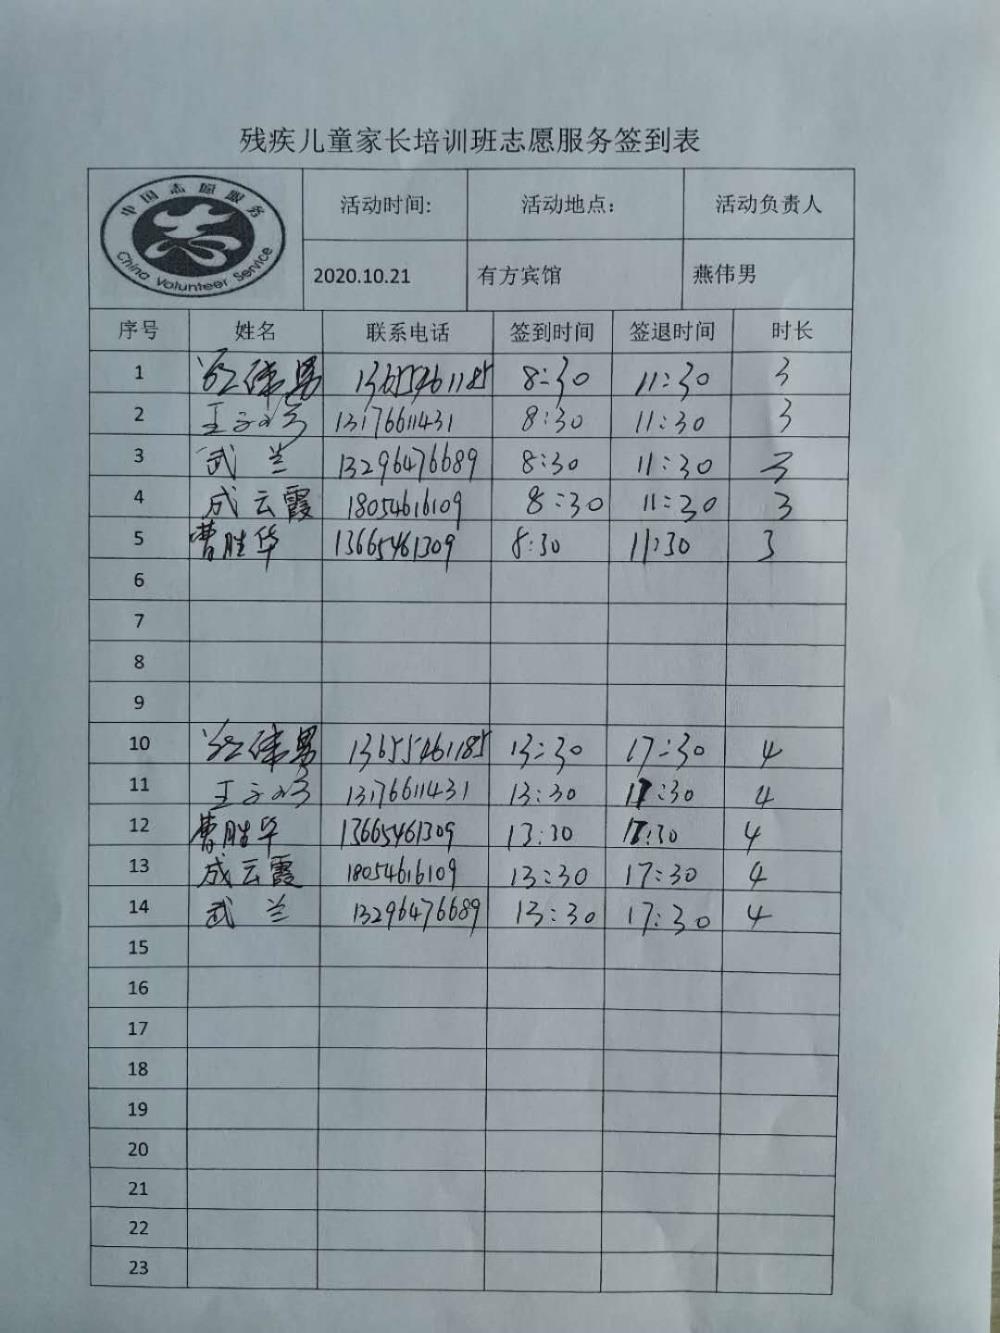 残疾儿童家长培训班志愿服务签到表
中国志愿服务
China Volunteer Service
活动时间: 活动地点： 活动负责人
2020.10.21 有方宾馆 燕伟男
序号 姓名 联系电话 签到时间 签退时间 时长
1 伟男 13655461185 8:30 11:30 3
2 王 13176611431 8:30 11:30 3
3 武兰 13296476689 8:30 11:30 3
4 成云霞 18054616109 8:30 11:30 3
5 曹胜华 13665461309 8:30 11:30 3
6
7
8
9
10 伟男 13655461185 13:30 17:30 4
11 王 13176611431 13:30 17:30 4
12 曹胜华 13665461309 13:30 17:30 4
13 成云霞 18054616109 13:30 17:30 4
14 武兰 13296476689 13:30 17:30 4
15
16
17
18
19
20
21
22
23